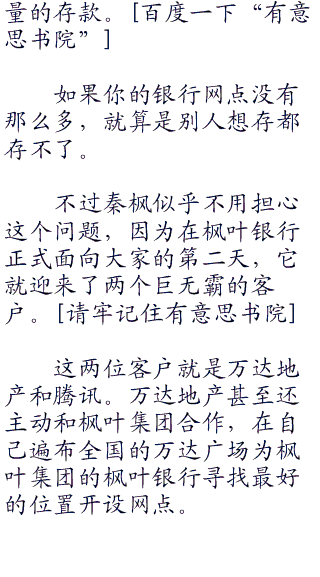 量的存款。[百度一下“有意
思书院”]
如果你的银行网点没有
那么多，就算是别人想存都
存不了。
不过秦枫似乎不用担心
这个问题，因为在枫叶银行
正式面向大家的第二天，它
就迎来了两个巨无霸的客
户。[请牢记住有意思书院]
这两位客户就是万达地
产和腾讯。万达地产甚至还
主动和枫叶集团合作，在自
己遍布全国的万达广场为枫
叶集团的枫叶银行寻找最好
的位置开设网点。